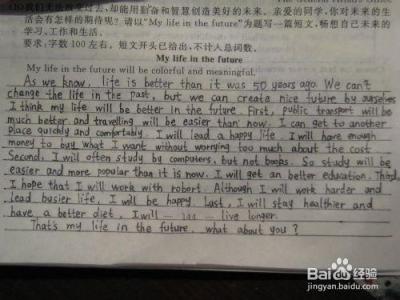 却能用勤奋和智慧创造美好的未来。亲爱的同学,你对未来的生
活会有怎样的期待呢?请以“My life in the future”为题写一篇短文,畅想自己未来的
学习、工作和生活。
要求:字数100左右。短文开头已给出,不计入总词数。
My life in the future
My life in the future will be colorful and meaningful.
As we know, life is better than it was 50 years ago. We can't
change the life in the past, but we can create nice future by ourselves
I think my life will be better in the future. First, public transport will be
much better and travelling will be easier than now. I can get to another
place quickly and comfortably. I will lead a happy life. I will have enough
money to buy what I want without worrying too much about the cost
Second, I will often study by computers, but not books. So study will be
easier and more popular than it is now. I will get an better education. Third,
I hope that I will work with robert. Although I will work harder and
lead busier life, I will be happy. Last, I will stay healthier and
have a better diet, I will live longer.
That's my life in the future. what about you?
Bai du 经验
jingyan.baidu.com